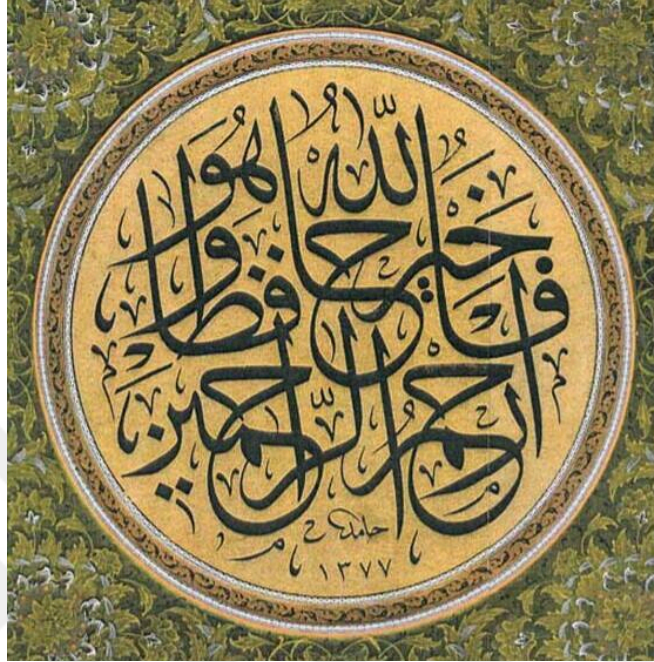 فالله خير حافظا وهو
أرحم الراحمين
حامد
١٣٧٧